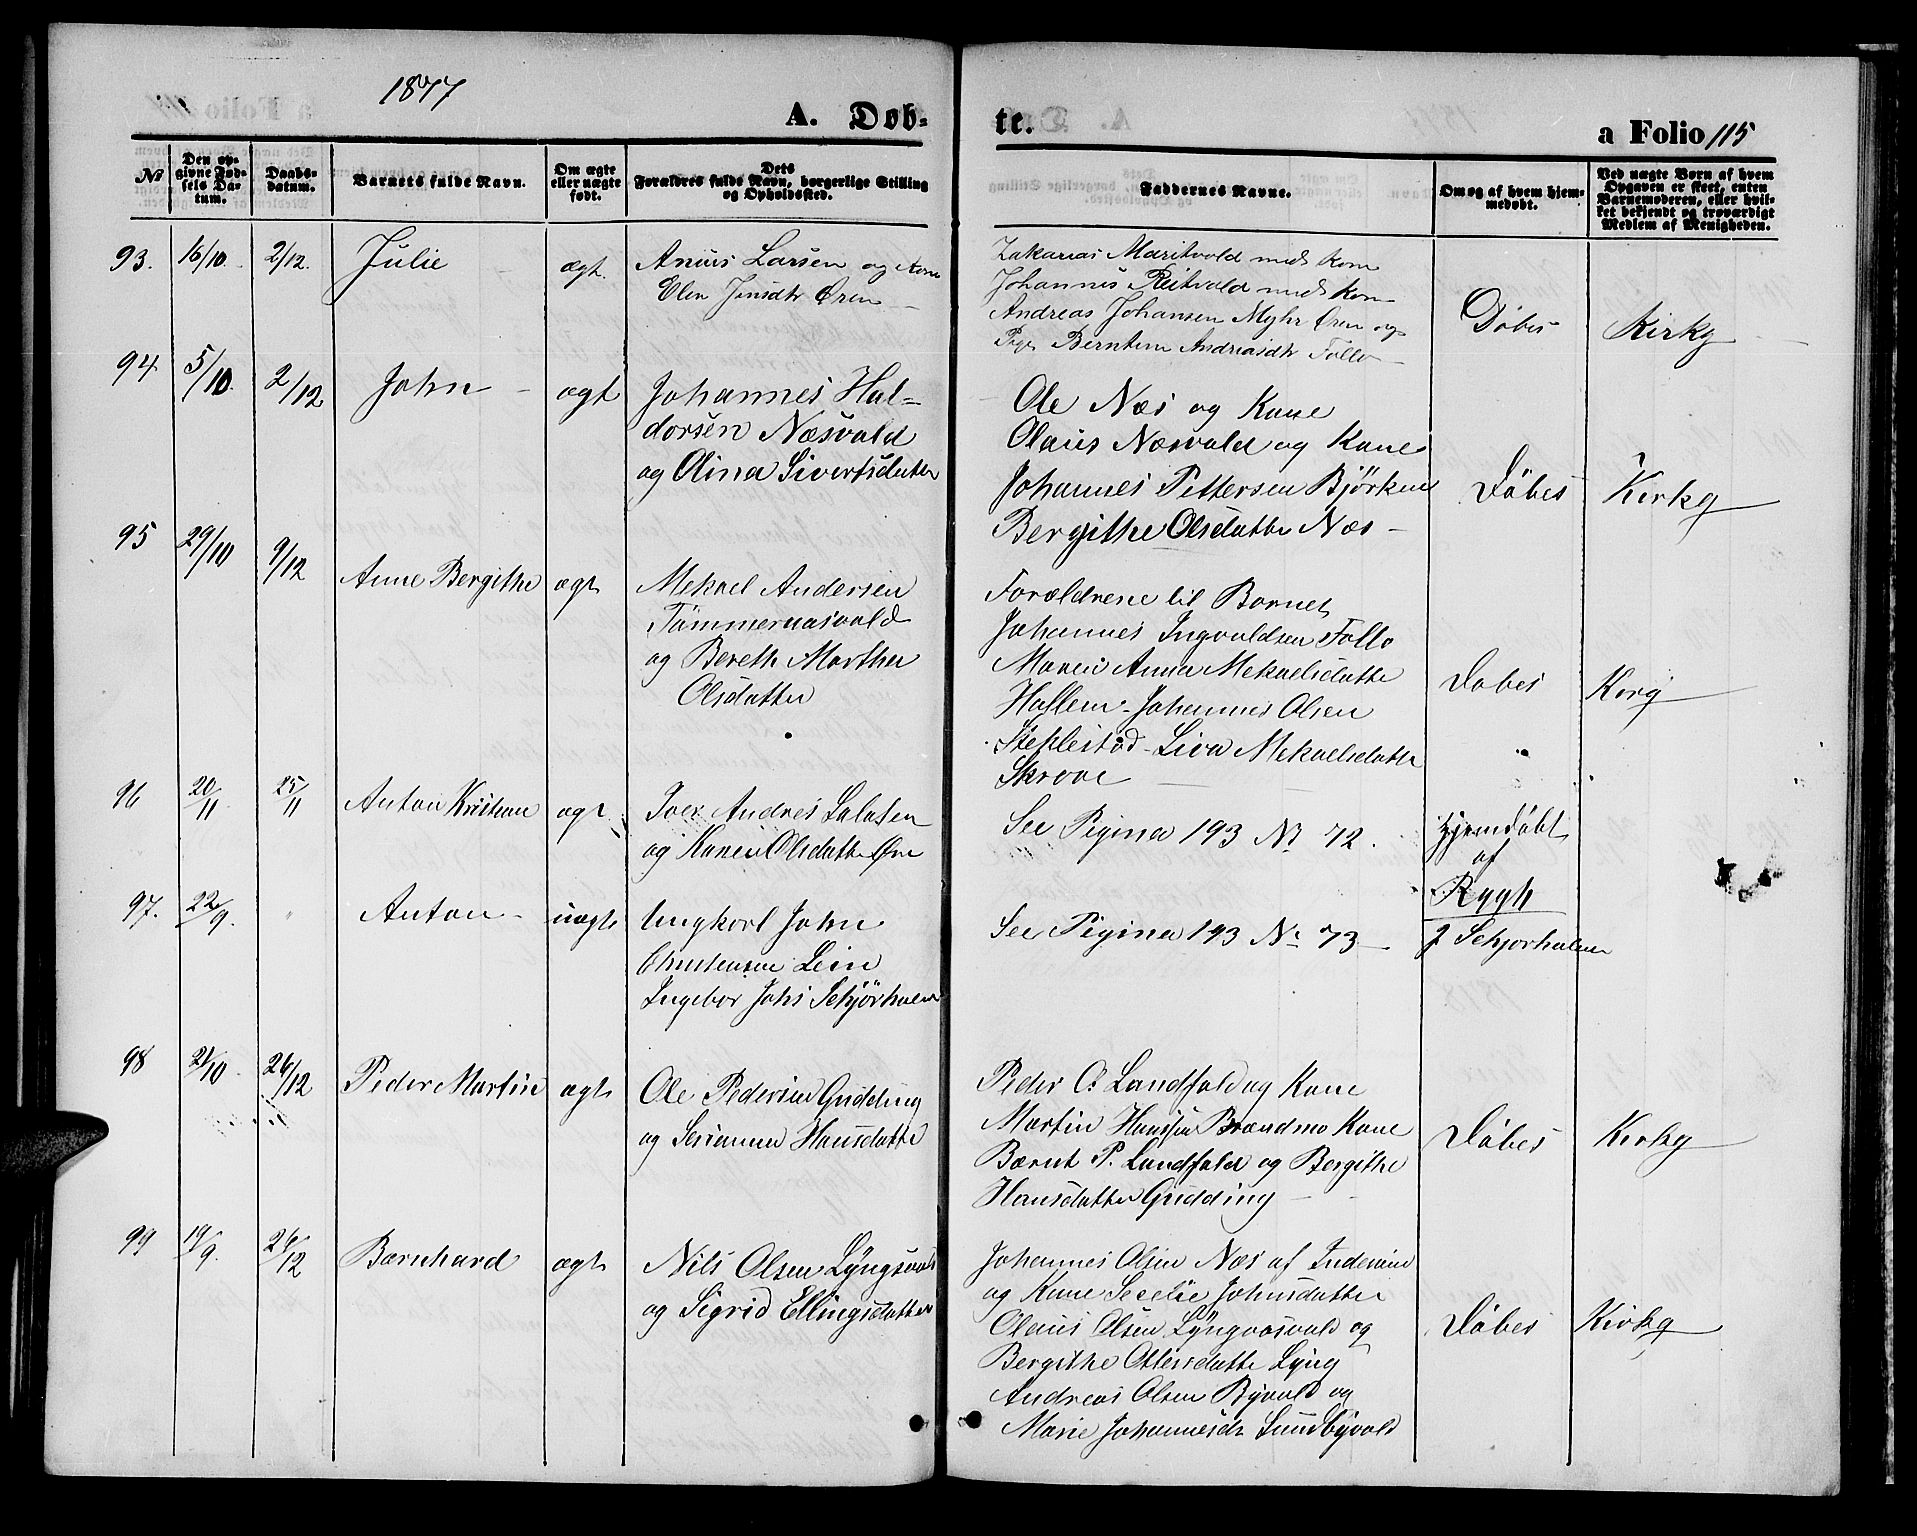 1877
A. Døb-
te.
a Folio 115
No
Den op-
givne Fød-
sels Da-
tum.
Daabs-
datum.
Barnets fulde Navn.
Om ægte
eller uægte
født.
Dets
Forældres fulde Navn, borgerlige Stilling
og Opholdssted.
Faddernes Navne.
Om og af hvem hjem-
medøbt.
Ved uægte Børn af hvem
Opgaven er skeet, enten
Barnemoderen, eller hvil-
ket bekjendt og troværdigt
Medlem af Menigheden.
93. 16/10. 2/12. Julie ægt. Anius Larsen og Kone
Elen Jensdtr Øren
Zakarias Maritvold med Kone
Johannes Reitvold med Kone
Andreas Johansen Myhr Øren og
Pige Berntine Andreasdtr Follo
Döbes Kirkg
94 5/10. 2/12 John ægt Johannes Hal-
dorsen Næsvald
og Olina Sivertsdatter
Ole Næs og Kone
Olaus Næsvald og Kone
Johannes Pettersen Björken
Bergithe Olsdatter Næs
Döbes Kirkg
95 29/10 9/12 Anne Bergithe ægt Mekael Andersen
Tömmernasvald
og Bereth Marthea
Olsdatter
Forældrene til Barnet
Johannes Ingvaldsen Follo
Maren Anna Mekaelsdatte
Hallem - Johannes Olsen
Steklestad - Liva Mekaelsdatte
Skrove
Dobes Kirg
96 20/11. 25/11 Anton Kristian ægt. Andres Salasen
og Karen Olsdatter Øre
See Pigina 193 No 72.
Hjemdöbt
af
Rygh
97. 22/9. " Anton uægt Ungkarl John
Christensen Lein
Ingebor Johs Schjörholmen
See Pigina 193 No 73
J. Schjorholmen
98 21/10 26/12 Peder Martin ægt Ole Pedersen Gudding
og Serianna Hansdatte
Peder O. Landfald og Kone
Martin Hanssen Brandmo Kone
Bærnt P. Landfald og Bergithe
Hansdatter Gudding
Döbes Kirkg
99 19/9. 26/12 Bærnhard ægt Nils Olsen Lyngsvald
og Sigrid Ellingsdatter
Johannes Olsen Næs af Inderøen
og Kone Secelie Johnsdatter
Olaus Olsen Lyngvasvald og
Bergithe Ottersdatte Lyng
Andreas Olsen Byvald og
Marie Johannesdr Sundbyvald
Döbes Kirkg